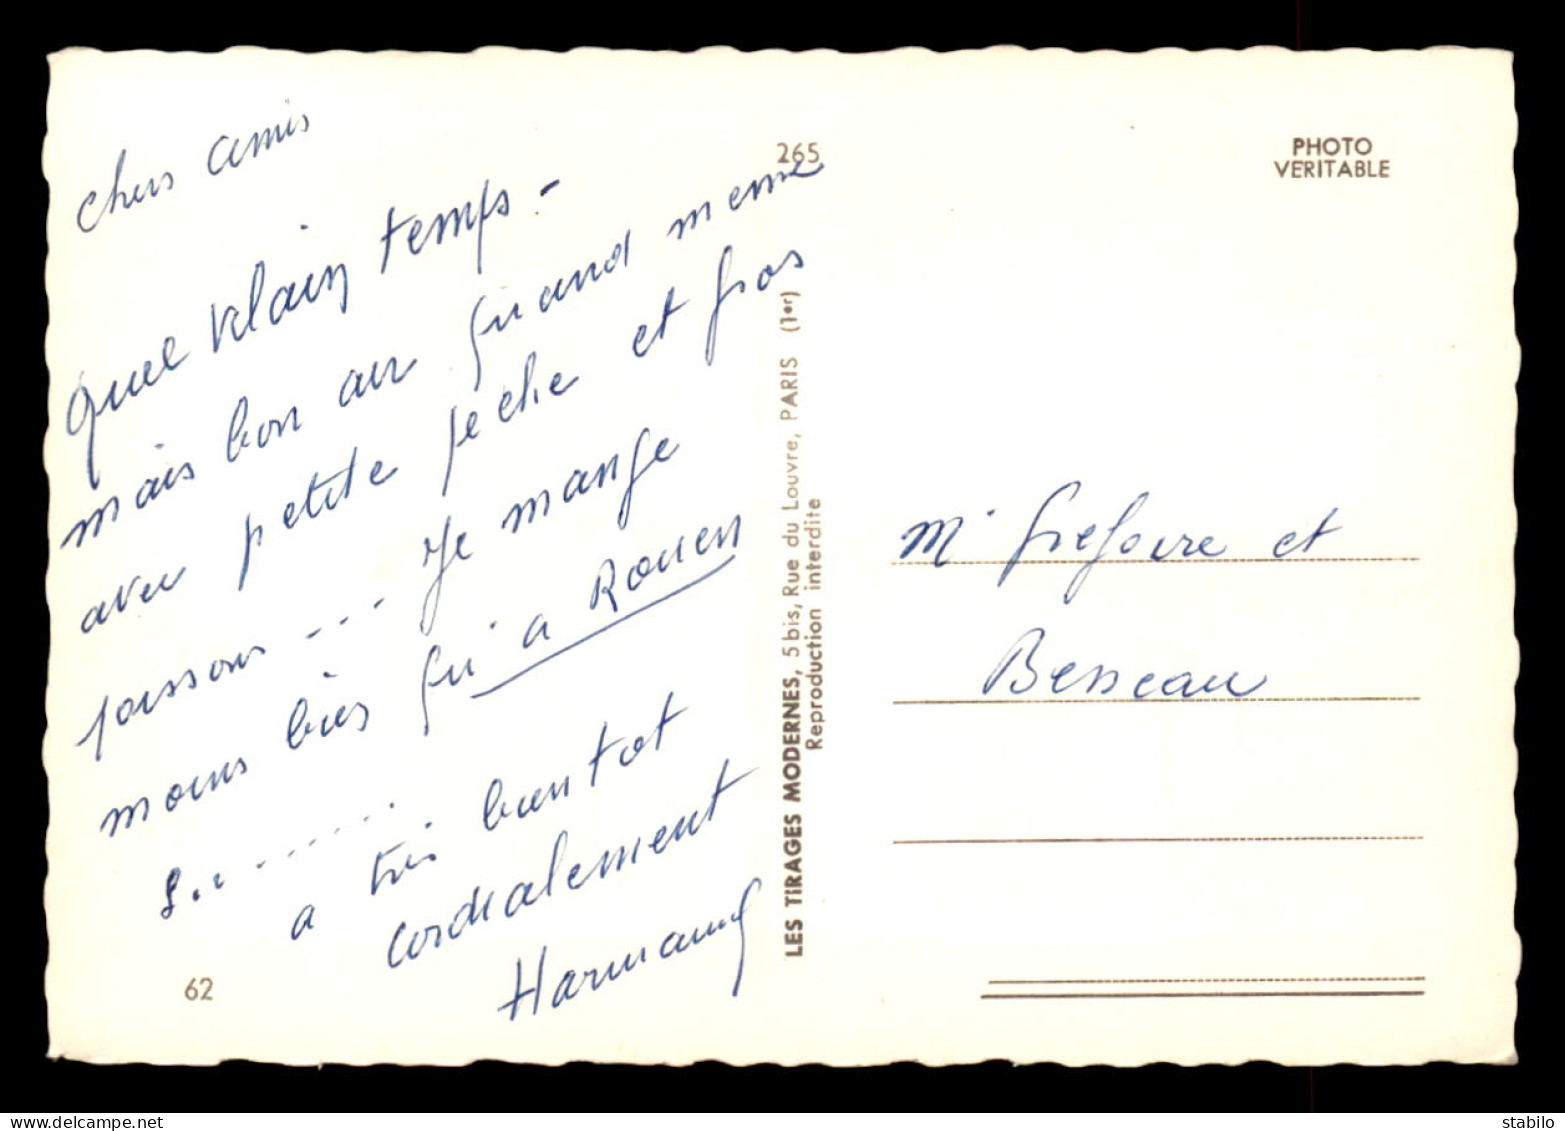 chers amis
Quel vilain temps -
mais bon air quand meme
avec petite peche et gros
poissons - - - Je mange
moins bien qu'a Rouen
a très bientot
cordialement
62
265
PHOTO
VERITABLE
LES TIRAGES MODERNES, 5 bis, Rue du Louvre, PARIS (1er)
Reproduction interdite
Mr Gregoire et
Besseau
stabilo